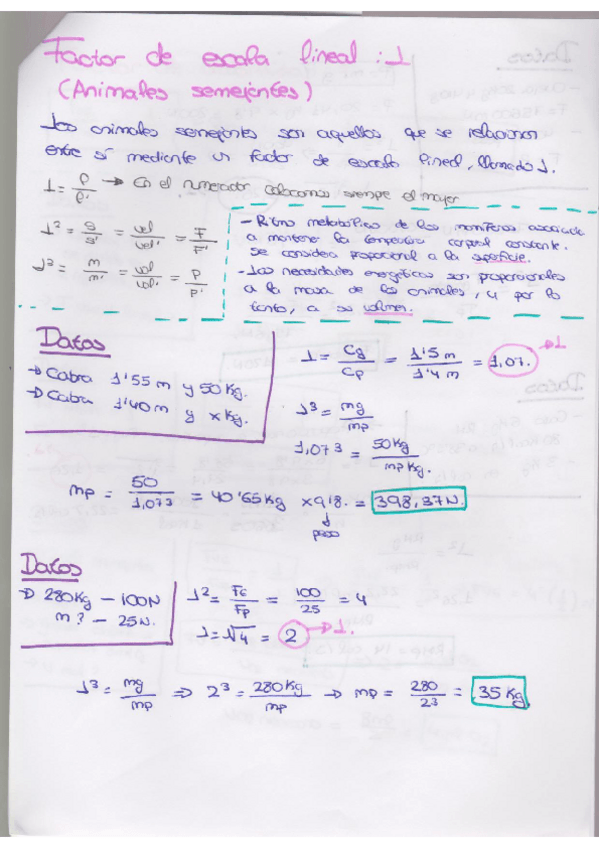 Factor de escala lineal: L
(Animales semejantes)
Los animales semejantes son aquellos que se relacionan
entre sí mediante un factor de escala lineal, llamado L.
L = l/l' → En el numerador colocamos siempre el mayor
L² = s/s' = vel/vel' = F/F'
L³ = m/m' = vol/vol' = P/P'
- Ritmo metabólico de los mamíferos asociado
a mantener la temperatura corporal constante.
Se considera proporcional a la superficie.
- Las necesidades energéticas son proporcionales
a la masa de los animales, y por lo
tanto, a su volumen.
Datos
→ Cabra 1'55 m y 50 Kg.
→ Cabra 1'40 m y x Kg.
L = Cg/Cp = 1'5 m/1'4 m = 1,07. → L
L³ = mg/mp
1,07³ = 50 Kg/mp Kg.
mp = 50/1,07³ = 40'65 Kg × 9'8. = 398,37 N.
↓
peso
Datos
→ 280 Kg – 100 N
m? – 25 N.
L² = FG/Fp = 100/25 = 4
L = √4 = 2 → L.
L³ = mg/mp ⇒ 2³ = 280 Kg/mp → mp = 280/2³ = 35 Kg.